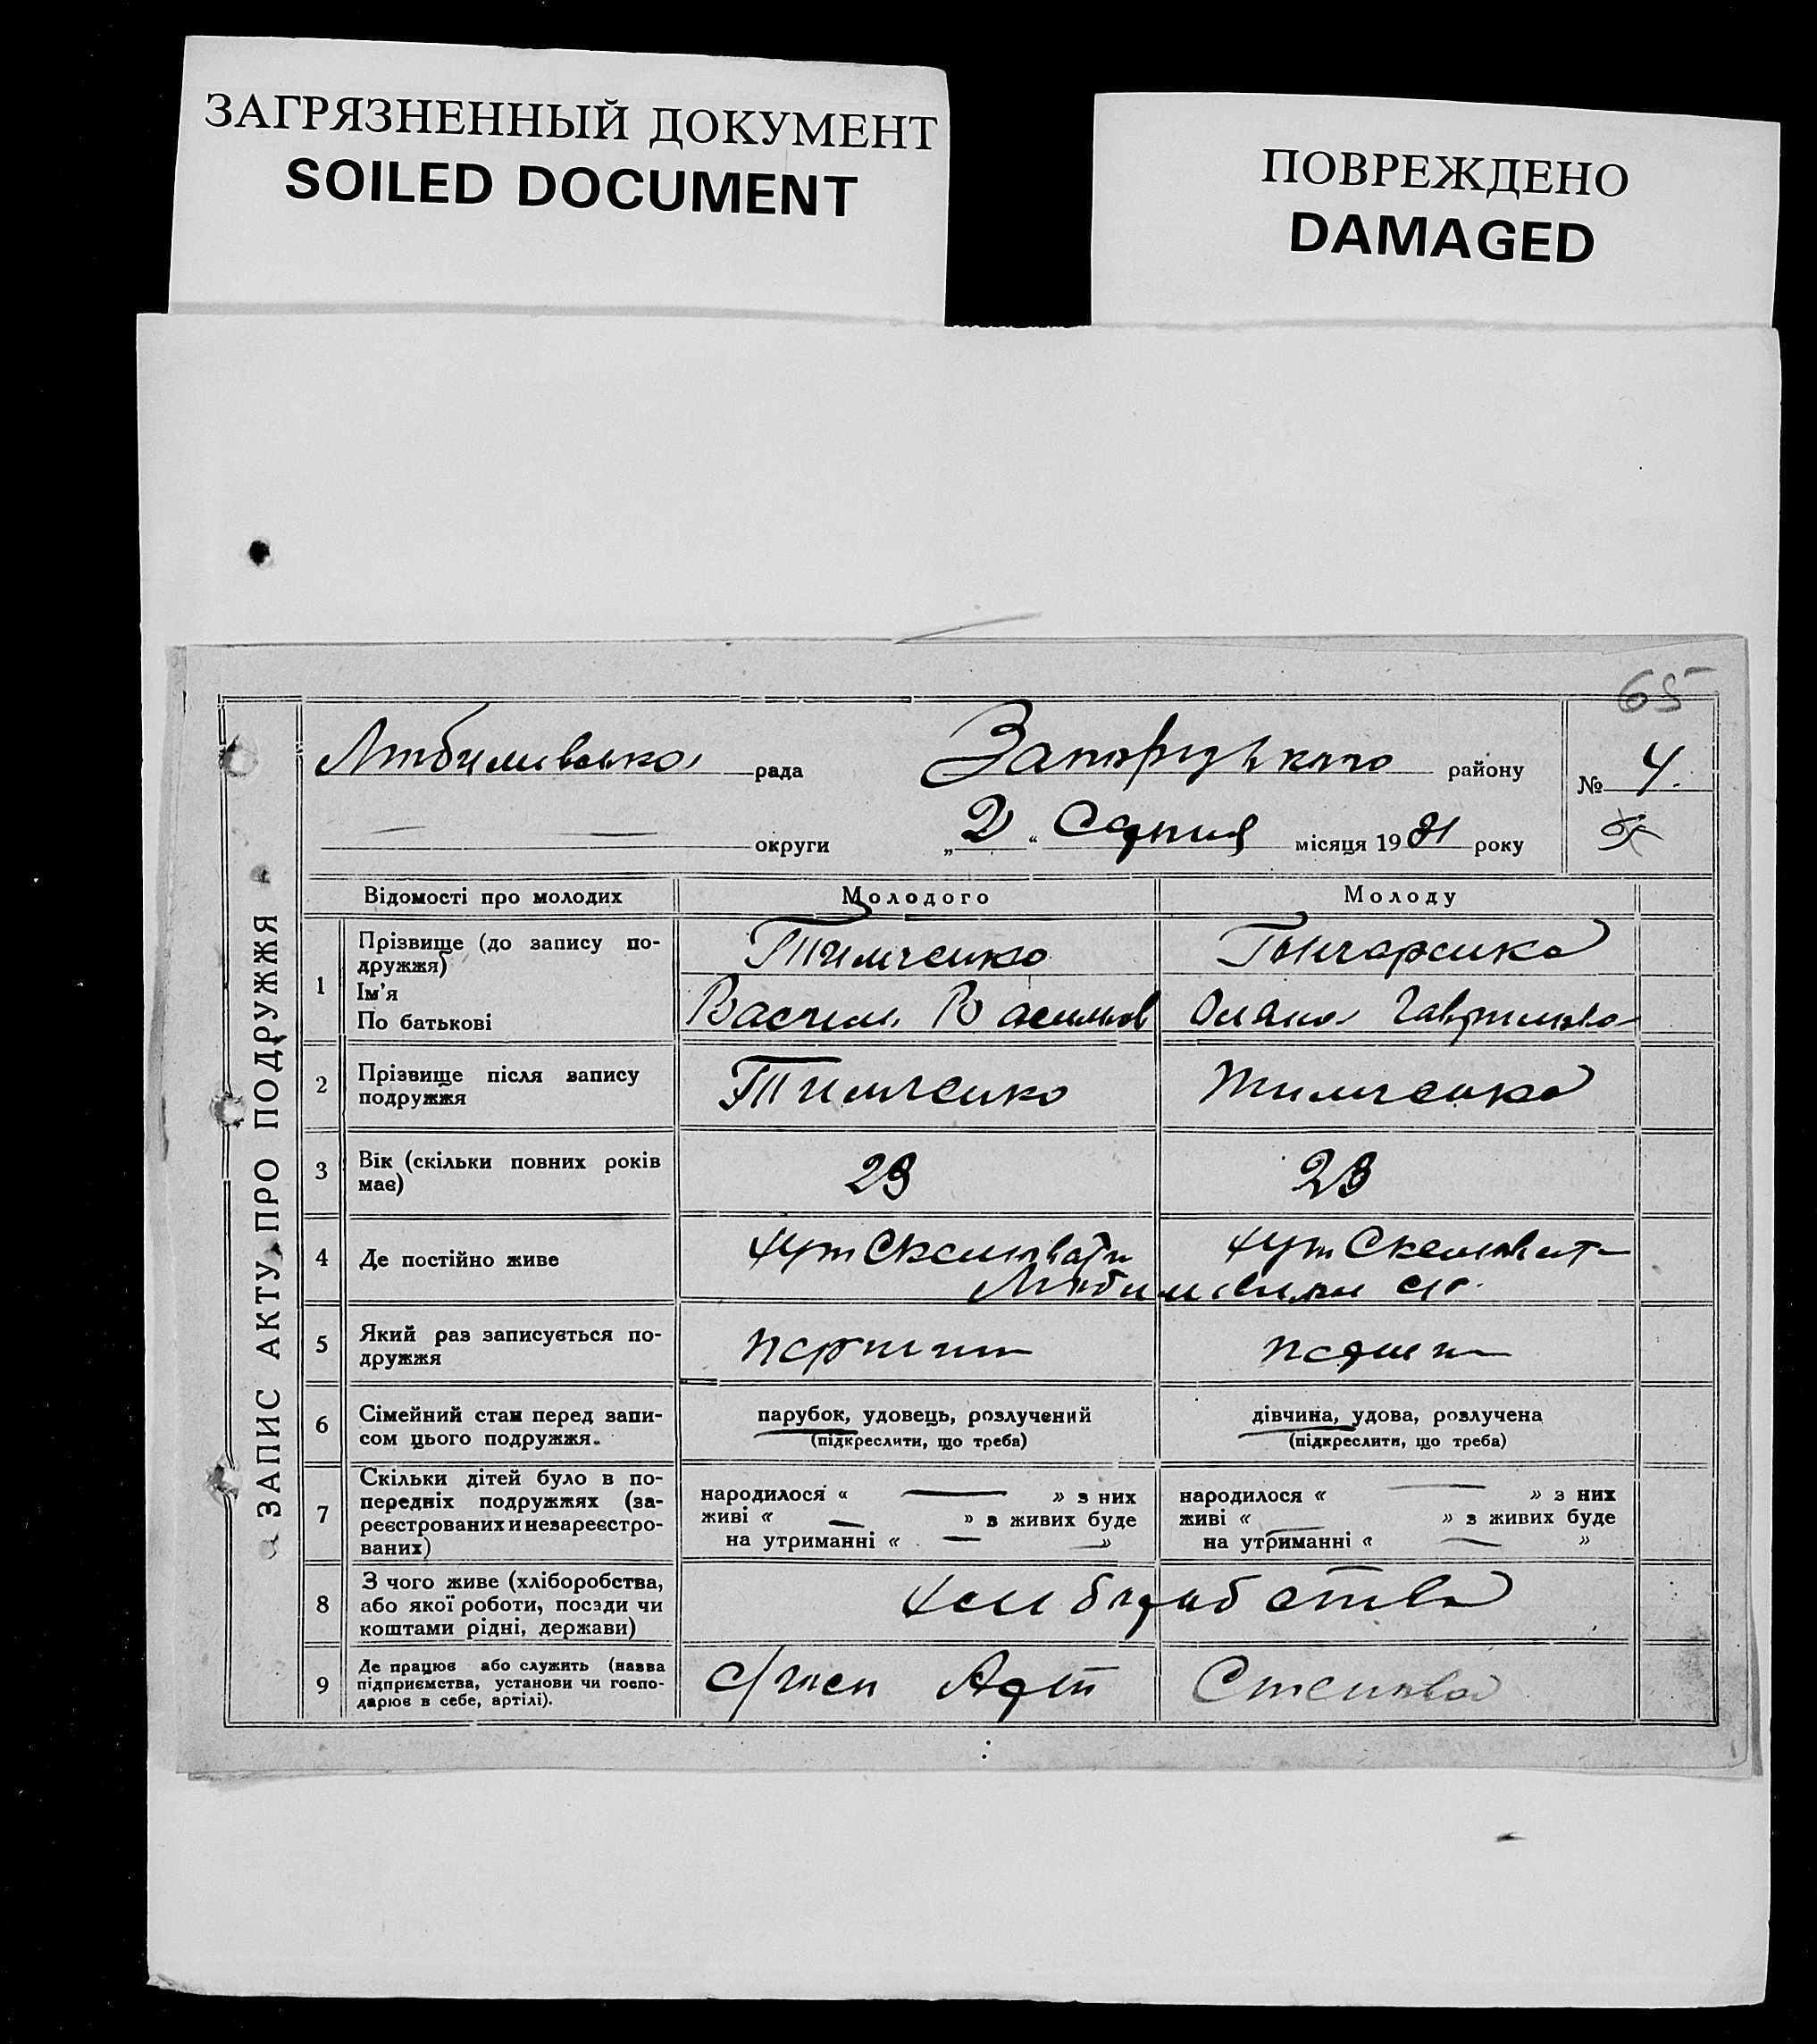 ЗАГРЯЗНЕННЫЙ ДОКУМЕНТ
SOILED DOCUMENT
ПОВРЕЖДЕНО
DAMAGED
65
ЗАПИС АКТУ ПРО ПОДРУЖЖЯ
Любимивська рада Запорізького району № 4.
округи „2“ Серпня місяця 1931 року
Відомості про молодих Молодого Молоду
1 Прізвище (до запису по-
дружжя) Тимченко Гончаренко
Ім'я
По батькові Василь Васильов Оляна Гаврилова
2 Прізвище після запису
подружжя Тимченко Тимченко
3 Вік (скільки повних років
має) 23 23
4 Де постійно живе хут Скелювати хут Скелюват
5 Який раз записується по-
дружжя перший перши
6 Сімейний стан перед запи-
сом цього подружжя.
парубок, удовець, розлучений дівчина, удова, розлучена
(підкреслити, що треба) (підкреслити, що треба)
7 Скільки дітей було в по-
передніх подружжях (за-
реєстрованих и незареєстро-
ваних)
народилося « » з них народилося « » з них
живі « » в живих буде живі « » з живих буде
на утриманні « » на утриманні « »
8 З чого живе (хліборобства,
або якої роботи, посади чи
коштами рідні, держави)
хлибробства
9 Де працює або служить (назва
підприємства, установи чи госпо-
дарює в себе, артілі).
Арт